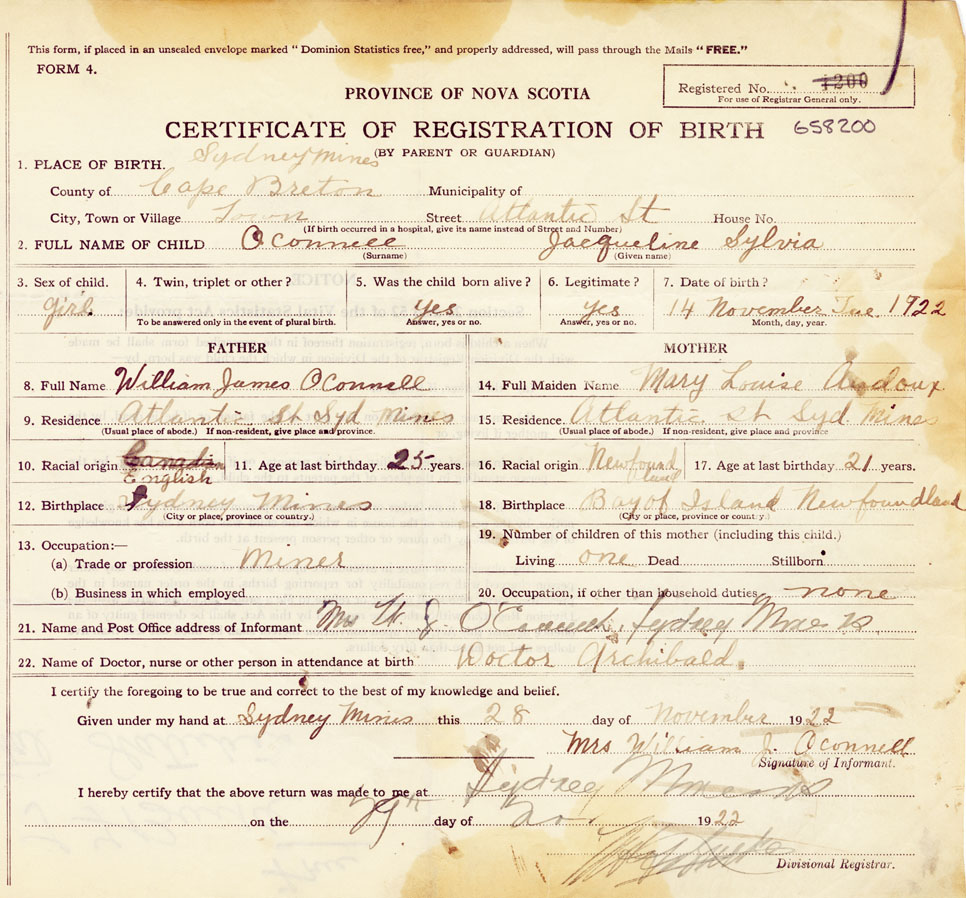 This form, if placed in an unsealed envelope marked " Dominion Statistics free," and properly addressed, will pass through the Mails "FREE."
FORM 4.
Registered No. 1200
For use of Registrar General only.
PROVINCE OF NOVA SCOTIA
CERTIFICATE OF REGISTRATION OF BIRTH 658200
(BY PARENT OR GUARDIAN)
1. PLACE OF BIRTH. Sydney Mines
County of Cape Breton Municipality of
City, Town or Village Town Street Atlantic St House No.
(If birth occurred in a hospital, give its name instead of Street and Number)
2. FULL NAME OF CHILD O'Connell Jacqueline Sylvia
(Surname) (Given name)
3. Sex of child. 4. Twin, triplet or other? 5. Was the child born alive? 6. Legitimate? 7. Date of birth?
girl yes yes 14 November Tue 1922
To be answered only in the event of plural birth. Answer, yes or no. Answer, yes or no. Month, day, year.
FATHER MOTHER
8. Full Name William James O'Connell 14. Full Maiden Name Mary Louise
9. Residence Atlantic St Syd Mines 15. Residence Atlantic St Syd Mines
(Usual place of abode.) If non-resident, give place and province. (Usual place of abode.) If non-resident, give place and province
10. Racial origin Canadian 11. Age at last birthday 25 years. 16. Racial origin Newfoundland 17. Age at last birthday 21 years.
English
12. Birthplace Sydney Mines 18. Birthplace Bay of Island Newfoundland
(City or place, province or country.) (City or place, province or country.)
13. Occupation:— 19. Number of children of this mother (including this child.)
(a) Trade or profession Miner Living one Dead Stillborn
(b) Business in which employed 20. Occupation, if other than household duties none
21. Name and Post Office address of Informant Mrs W. J. O'Connell, Sydney Mines
22. Name of Doctor, nurse or other person in attendance at birth Doctor Archibald.
I certify the foregoing to be true and correct to the best of my knowledge and belief.
Given under my hand at Sydney Mines this 28 day of November 1922
Mrs William J. O'Connell
Signature of Informant.
I hereby certify that the above return was made to me at Sydney Mines
on the 29th day of Nov. 1922
Divisional Registrar.